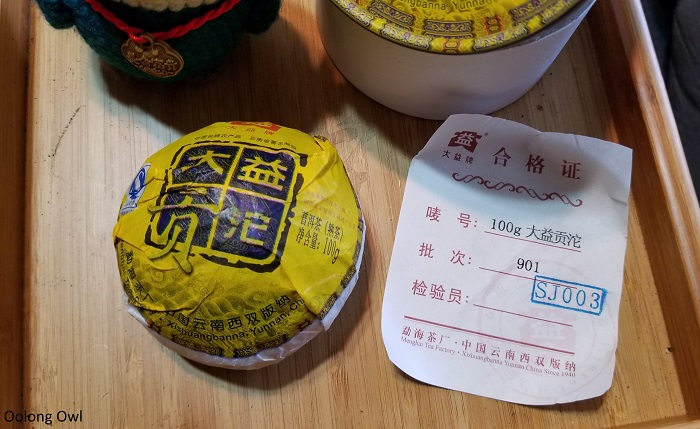 Xishuangbanna, Yunnan
大益牌
大益
贡沱
普洱茶（熟茶）
净含量：100g
勐海茶厂
中国云南西双版纳
Xishuangbanna, Yunnan, Chi
益
大益牌
合格证
唛 号： 100g 大益贡沱
批 次： 901
检验员： SJ003
勐海茶厂·中国云南西双版纳
Menghai Tea Factory • Xishuangbanna Yunnan China Since 1940
Oolong Owl